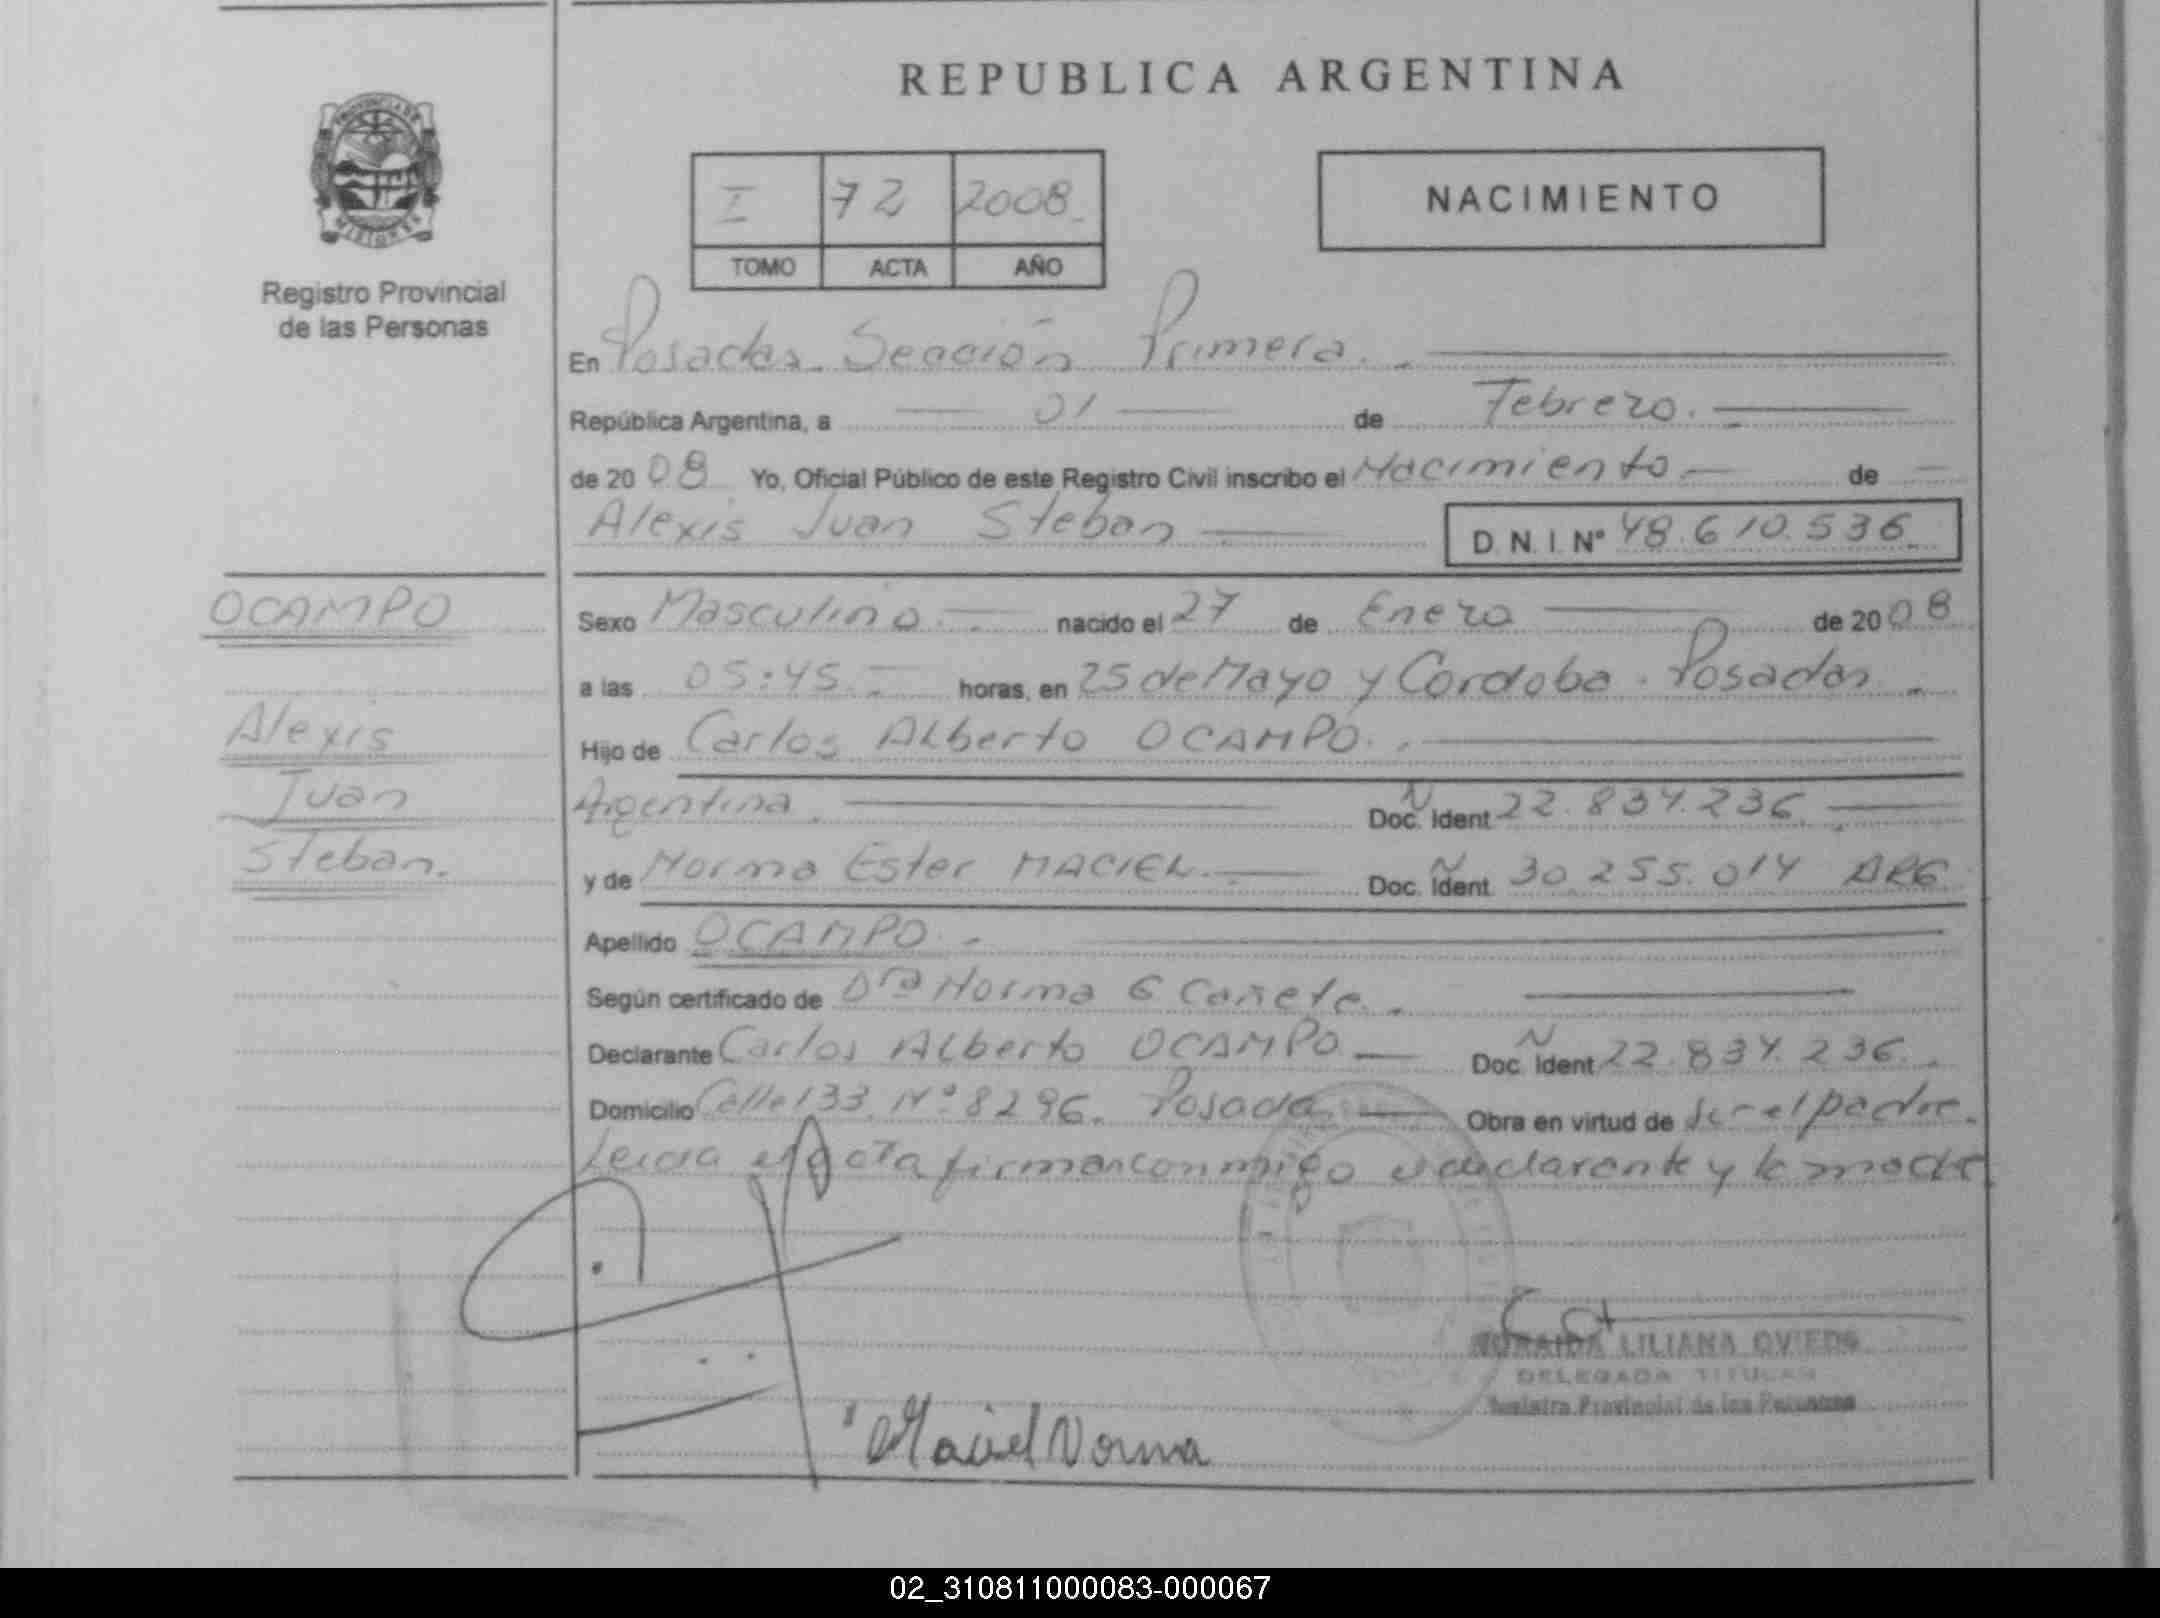 REPUBLICA ARGENTINA
PROVINCIA DE
MISIONES
Registro Provincial
de las Personas
I 72 2008
TOMO ACTA AÑO
NACIMIENTO
En Posadas. Sección Primera.
República Argentina, a 01 de Febrero.
de 2008 Yo, Oficial Público de este Registro Civil inscribo el Nacimiento de
Alexis Juan Steban D.N.I. Nº 48.610.536
OCAMPO
Alexis
Juan
Steban.
Sexo Masculino nacido el 27 de Enero de 2008
a las 05:45 horas, en 25 de Mayo y Cordoba. Posadas.
Hijo de Carlos Alberto OCAMPO.
Argentina. Doc. Ident N 22.834.236
y de Norma Ester MACIEL. Doc. Ident N 30.255.014 ARG
Apellido OCAMPO.
Según certificado de Dra Norma G Cañete.
Declarante Carlos Alberto OCAMPO Doc. Ident N 22.834.236.
Domicilio Calle 133 Nº 8296. Posadas Obra en virtud de ser el padre.
Leida el acta firman conmigo el declarante y la madre
ZORAIDA LILIANA OVIEDO
DELEGADA TITULAR
Registro Provincial de las Personas
Maciel Norma
02_310811000083-000067